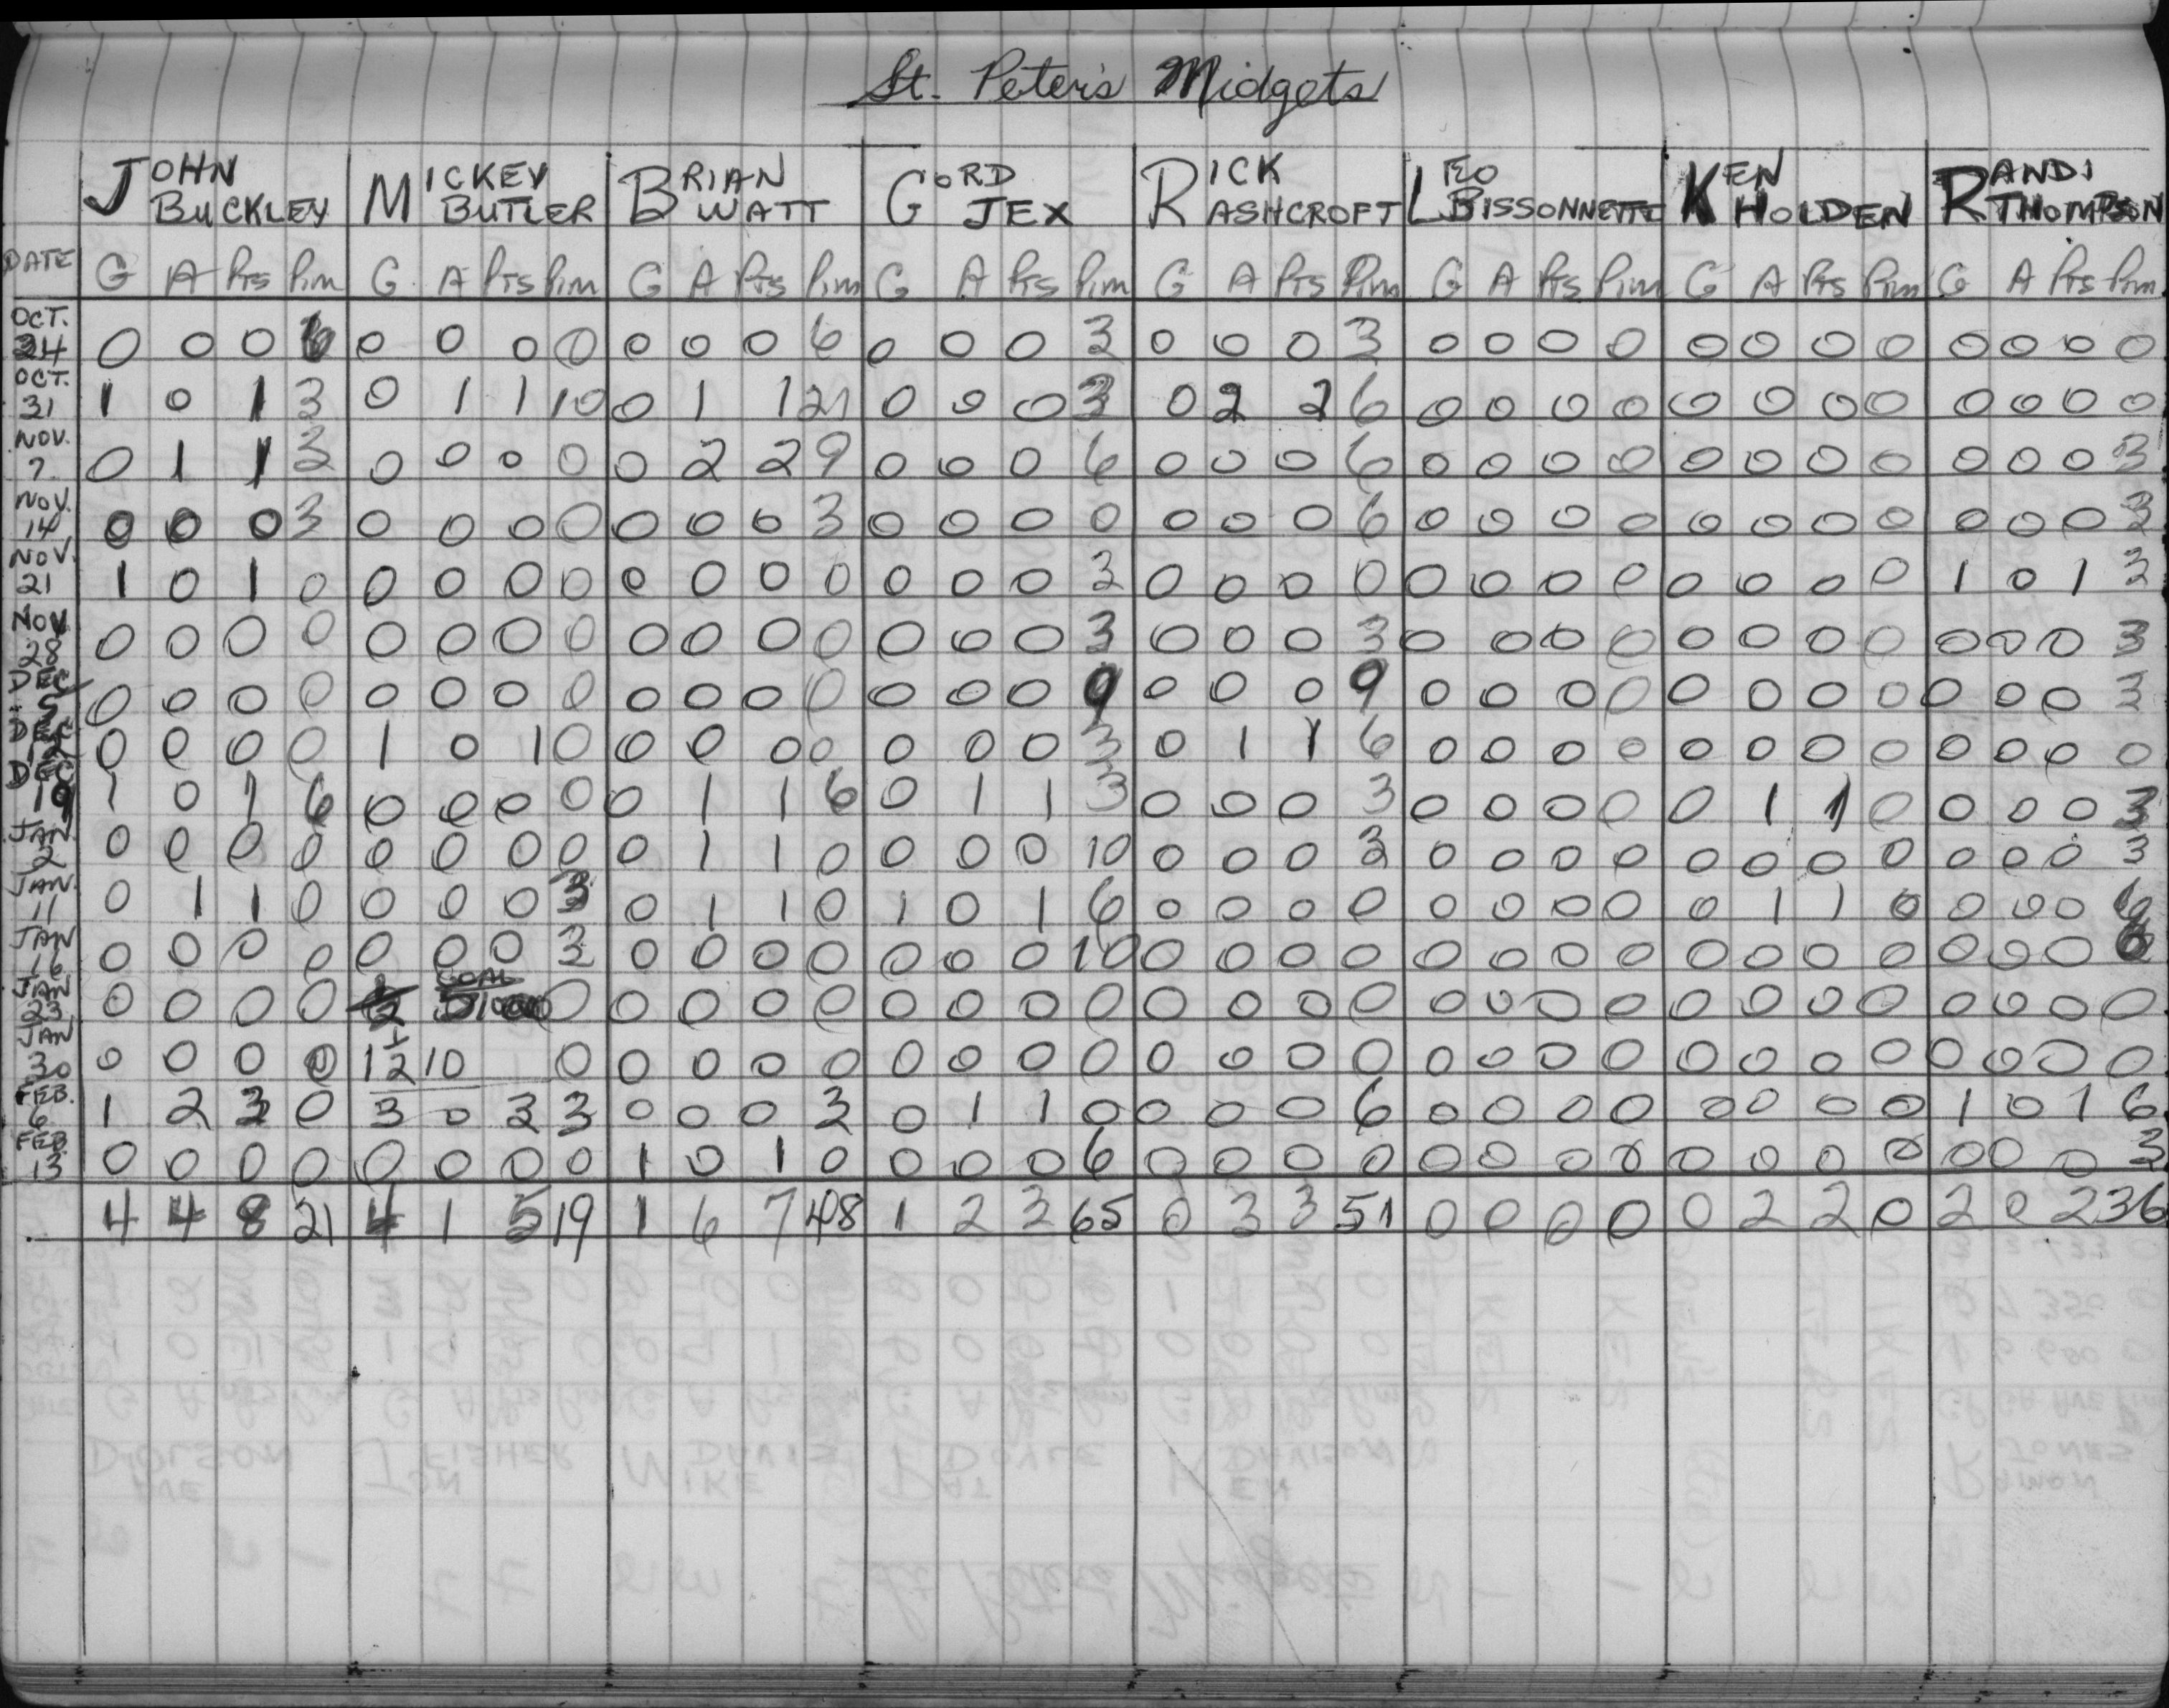 St. Peter's Midgets
JOHN BUCKLEY MICKEY BUTLER BRIAN WATT GORD JEX RICK ASHCROFT LEO BISSONNETTE KEN HOLDEN RANDI THOMPSON
DATE G A Pts Pim G A Pts Pim G A Pts Pim G A Pts Pim G A Pts Pim G A Pts Pim G A Pts Pim G A Pts Pim
OCT. 24 0 0 0 6 0 0 0 0 0 0 0 6 0 0 0 3 0 0 0 3 0 0 0 0 0 0 0 0 0 0 0 0
OCT. 31 1 0 1 3 0 1 1 10 0 1 1 21 0 0 0 3 0 2 2 6 0 0 0 0 0 0 0 0 0 0 0 0
NOV. 7 0 1 1 3 0 0 0 0 0 2 2 9 0 0 0 6 0 0 0 6 0 0 0 0 0 0 0 0 0 0 0 3
NOV. 14 0 0 0 3 0 0 0 0 0 0 0 3 0 0 0 0 0 0 0 6 0 0 0 0 0 0 0 0 0 0 0 3
NOV. 21 1 0 1 0 0 0 0 0 0 0 0 0 0 0 0 3 0 0 0 0 0 0 0 0 0 0 0 0 1 0 1 3
NOV. 28 0 0 0 0 0 0 0 0 0 0 0 0 0 0 0 3 0 0 0 3 0 0 0 0 0 0 0 0 0 0 0 3
DEC 5 0 0 0 0 0 0 0 0 0 0 0 0 0 0 0 9 0 0 0 9 0 0 0 0 0 0 0 0 0 0 0 3
DEC 12 0 0 0 0 1 0 1 0 0 0 0 0 0 0 0 3 0 1 1 6 0 0 0 0 0 0 0 0 0 0 0 0
DEC 19 1 0 1 6 0 0 0 0 0 1 1 6 0 1 1 3 0 0 0 3 0 0 0 0 0 1 1 0 0 0 0 3
JAN. 2 0 0 0 0 0 0 0 0 0 1 1 0 0 0 0 10 0 0 0 3 0 0 0 0 0 0 0 0 0 0 0 3
JAN. 11 0 1 1 0 0 0 0 3 0 1 1 0 1 0 1 6 0 0 0 0 0 0 0 0 0 1 1 0 0 0 0
JAN 16 0 0 0 0 0 0 0 3 0 0 0 0 0 0 0 10 0 0 0 0 0 0 0 0 0 0 0 0 0 0 0
JAN 23 0 0 0 0 GOAL 0 0 0 0 0 0 0 0 0 0 0 0 0 0 0 0 0 0 0 0 0 0 0 0 0
JAN 30 0 0 0 0 1 2 10 0 0 0 0 0 0 0 0 0 0 0 0 0 0 0 0 0 0 0 0 0 0 0 0 0
FEB. 6 1 2 3 0 3 0 3 3 0 0 0 3 0 1 1 0 0 0 0 6 0 0 0 0 0 0 0 0 1 0 1 6
FEB. 13 0 0 0 0 0 0 0 0 1 0 1 0 0 0 0 6 0 0 0 0 0 0 0 0 0 0 0 0 0 0 0 3
4 4 8 21 4 1 5 19 1 6 7 48 1 2 3 65 0 3 3 51 0 0 0 0 0 2 2 0 2 0 2 36